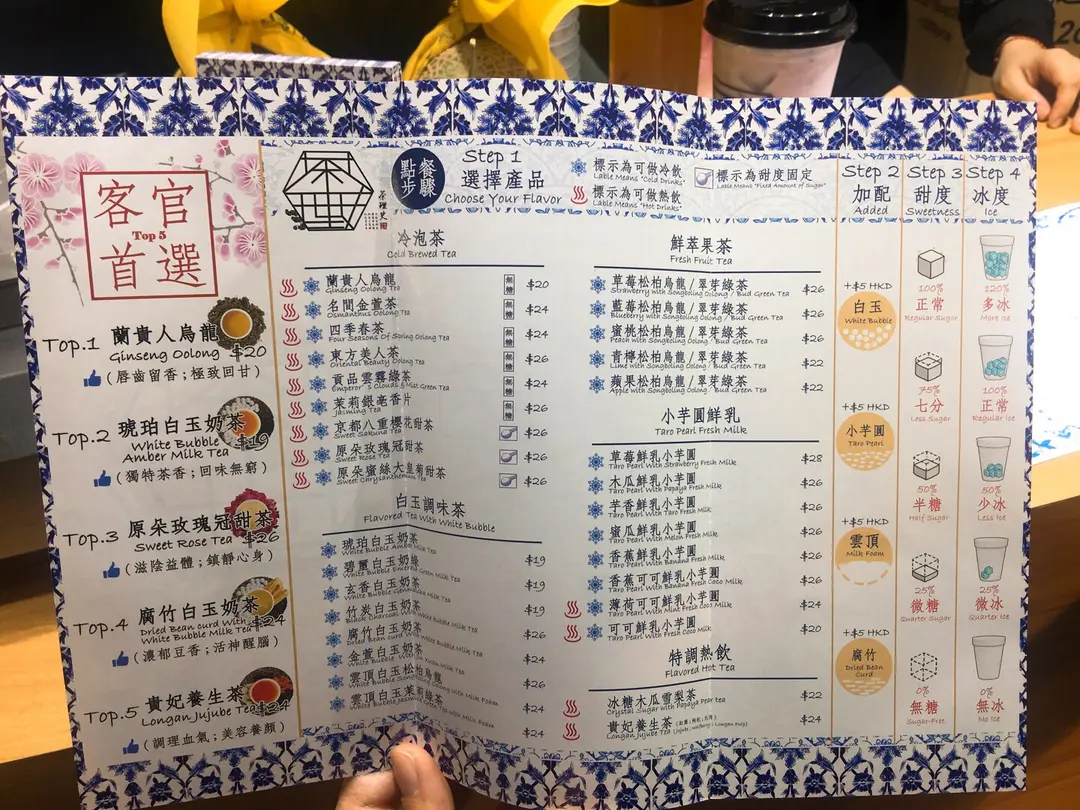 客官
Top 5
首選
Top.1 蘭貴人烏龍
Ginseng Oolong $20
(唇齒留香;極致回甘)
Top.2 琥珀白玉奶茶
White Bubble
Amber Milk Tea $19
(獨特茶香;回味無窮)
Top.3 原朵玫瑰冠甜茶
Sweet Rose Tea $26
(滋陰益體;鎮靜心身)
Top.4 腐竹白玉奶茶
Dried Bean curd With
White Bubble Milk Tea $24
(濃郁豆香;活神醒腦)
Top.5 貴妃養生茶
Longan Jujube Tea $24
(調理血氣;美容養顏)
點餐步驟
Step 1
選擇產品
Choose Your Flavor
標示為可做冷飲
Lable Means "Cold Drinks"
標示為可做熱飲
Lable Means "Hot Drinks"
標示為甜度固定
Lable Means "Fixed Amount of Sugar"
冷泡茶
Cold Brewed Tea
蘭貴人烏龍 無糖 $20
Ginseng Oolong Tea
名間金萱茶 無糖 $24
Osmanthus Oolong Tea
四季春茶 無糖 $24
Four Seasons Of Spring Oolong Tea
東方美人茶 無糖 $26
Oriental Beauty Oolong Tea
貢品雲霧綠茶 無糖 $24
Emperor's Clouds & Mist Green Tea
茉莉銀毫香片 無糖 $26
Jasming Tea
京都八重櫻花甜茶 $26
Sweet Sakuna Tea
原朵玫瑰冠甜茶 $26
Sweet Rose Tea
原朵蜜絲大皇菊甜茶 $26
Sweet Chrysanthemum Tea
白玉調味茶
Flavored Tea With White Bubble
琥珀白玉奶茶 $19
White Bubble Amber Milk Tea
碧璽白玉奶綠 $19
White Bubble Emerald Green Milk Tea
玄香白玉奶茶 $19
White Bubble Genmaicha Milk Tea
竹炭白玉奶茶 $26
Black Charcoal With White Bubble Milk Tea
腐竹白玉奶茶 $24
Dried Bean curd With White Bubble Milk Tea
金萱白玉奶茶 $26
White Bubble With Jin Xuan Milk Tea
雲頂白玉松柏烏龍 $24
White Bubble Songboling Oolong With Milk Foam
雲頂白玉茉莉綠茶 $24
White Bubble Jasmine Green Tea With Milk Foam
鮮萃果茶
Fresh Fruit Tea
草莓松柏烏龍/翠芽綠茶 $26
Strawberry with Songboling Oolong / Bud Green Tea
藍莓松柏烏龍/翠芽綠茶 $26
Blueberry with Songboling Oolong / Bud Green Tea
蜜桃松柏烏龍/翠芽綠茶 $26
Peach with Songboling Oolong / Bud Green Tea
青檸松柏烏龍/翠芽綠茶 $22
Lime with Songboling Oolong / Bud Green Tea
蘋果松柏烏龍/翠芽綠茶 $22
Apple with Songboling Oolong / Bud Green Tea
小芋圓鮮乳
Taro Pearl Fresh Milk
草莓鮮乳小芋圓 $28
Taro Pearl With Strawberry Fresh Milk
木瓜鮮乳小芋圓 $26
Taro Pearl With Papaya Fresh Milk
芋香鮮乳小芋圓 $26
Taro Pearl With Taro Fresh Milk
蜜瓜鮮乳小芋圓 $26
Taro Pearl With Melon Fresh Milk
香蕉鮮乳小芋圓 $26
Taro Pearl With Banana Fresh Milk
香蕉可可鮮乳小芋圓 $26
Taro Pearl With Banana Fresh Coco Milk
薄荷可可鮮乳小芋圓 $24
Taro Pearl With Mint Fresh Coco Milk
可可鮮乳小芋圓 $20
Taro Pearl With Fresh Coco Milk
特調熱飲
Flavored Hot Tea
冰糖木瓜雪梨茶 $22
Crystal Sugar with Papaya Pear tea
貴妃養生茶 $24
Longan Jujube Tea
Step 2
加配
Added
+$5 HKD
白玉
White Bubble
+$5 HKD
小芋圓
Taro Pearl
+$5 HKD
雲頂
Milk Foam
+$5 HKD
腐竹
Dried Bean
Curd
Step 3
甜度
Sweetness
100%
正常
Regular Sugar
75%
七分
Less Sugar
50%
半糖
Half Sugar
25%
微糖
Quarter Sugar
0%
無糖
Sugar-Free
Step 4
冰度
Ice
120%
多冰
More Ice
100%
正常
Regular Ice
50%
少冰
Less Ice
25%
微冰
Quarter Ice
0%
無冰
No Ice